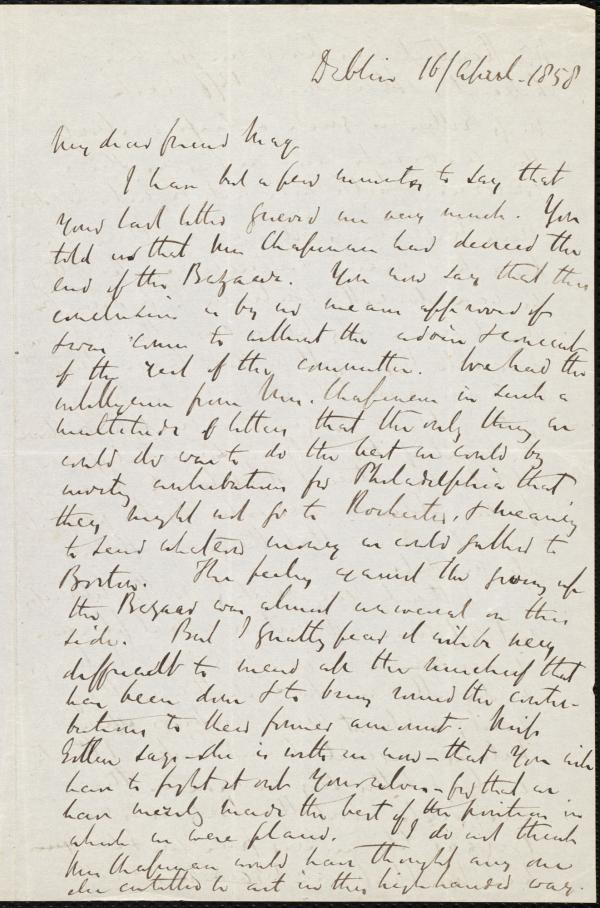 Dublin 16/April-1858
My dear friend May
I have but a few minutes to say that
your last letter grieved me very much. You
told us that Mrs Chapman had decreed the
end of the Bazaar. You now say that this
conclusion is by no means approved of
& was come to without the advice & consent
of the rest of the committee. We had the
intelligence from Mrs. Chapman in such a
multitude of letters that the only thing we
could do was to do the best we could by
inviting contributions for Philadelphia that
they might not go to Rochester, & meaning
to send whatever money we could gather to
Boston. The feeling against the giving up
the Bazaar was almost universal on this
side. But I greatly fear it will be very
difficult to mend all the mischief that
has been done & to bring round the contri-
butions to their former amount. Miss
Estlin says - she is with us now - that you will
have to fight it out yourselves - for that we
have merely made the best of the position in
which we were placed. I do not think
Mrs Chapman would have thought any one
else entitled to act in this high handed way.